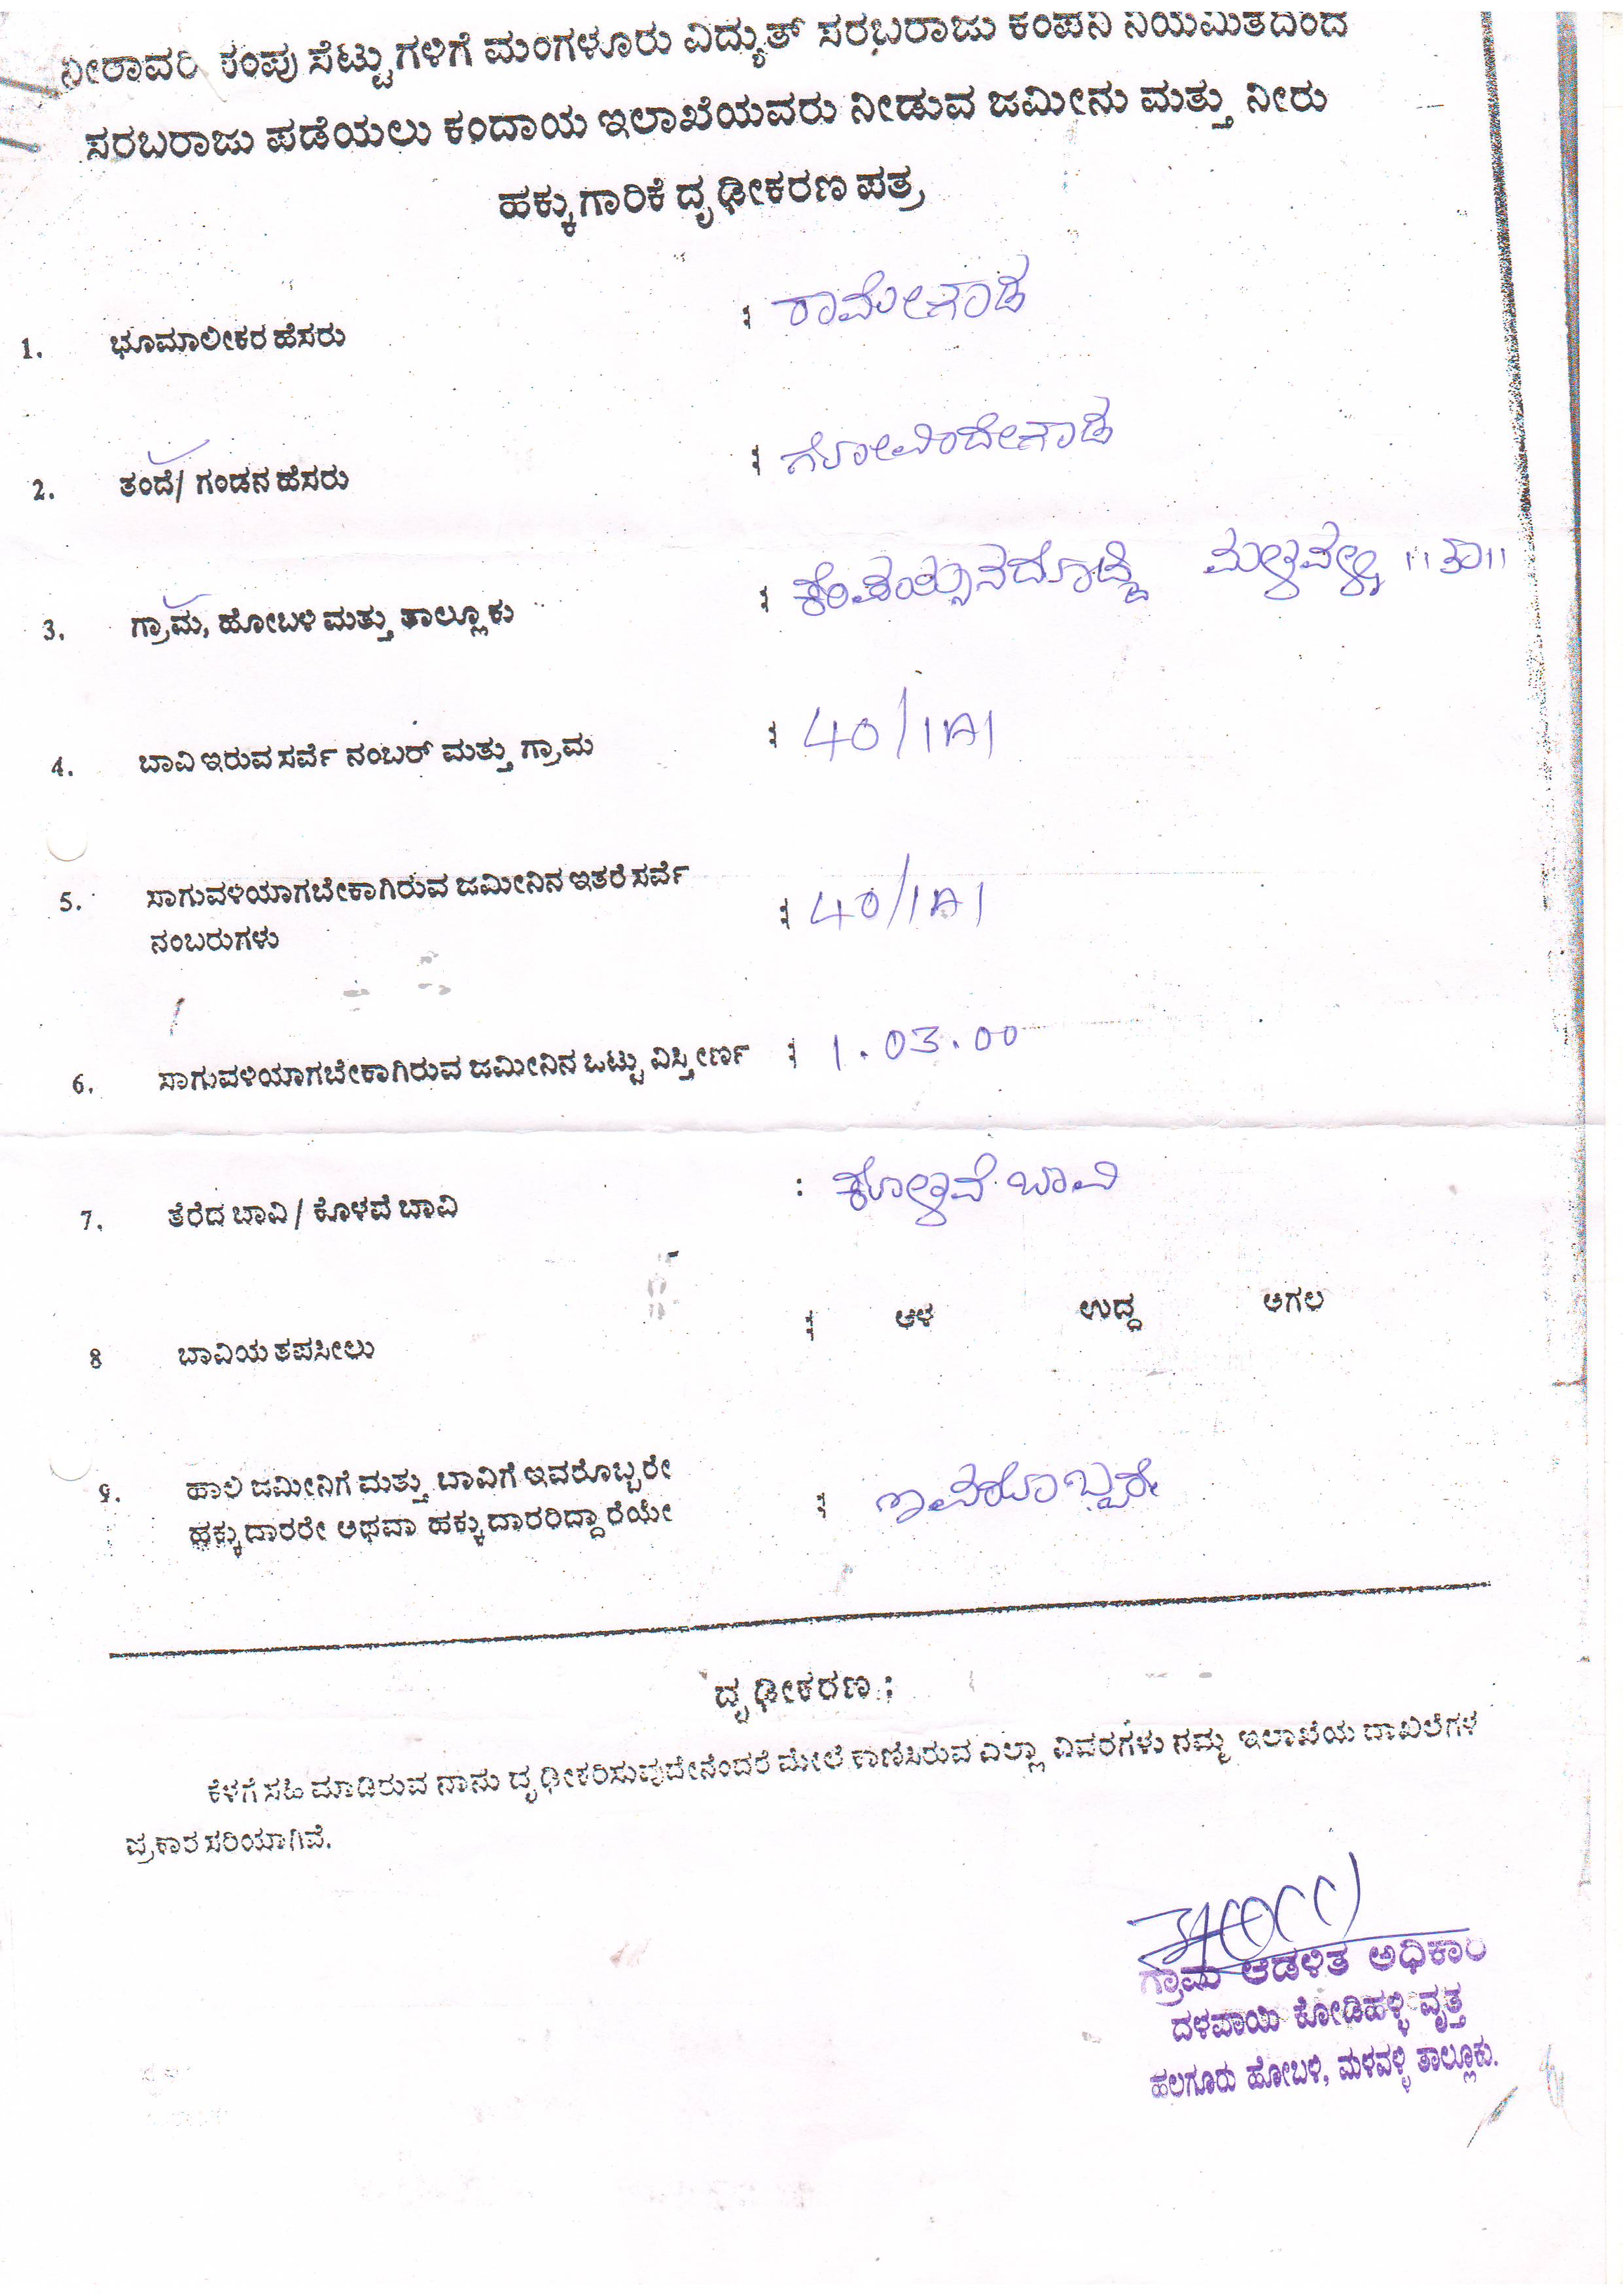 ನೀರಾವರಿ ಪಂಪು ಸೆಟ್ಟುಗಳಿಗೆ ಮಂಗಳೂರು ವಿದ್ಯುತ್ ಸರಬರಾಜು ಕಂಪನಿ ನಿಯಮಿತದಿಂದ
ಸರಬರಾಜು ಪಡೆಯಲು ಕಂದಾಯ ಇಲಾಖೆಯವರು ನೀಡುವ ಜಮೀನು ಮತ್ತು ನೀರು
ಹಕ್ಕುಗಾರಿಕೆ ದೃಢೀಕರಣ ಪತ್ರ
1. ಭೂಮಾಲೀಕರ ಹೆಸರು : ರಾಮೇಗೌಡ
2. ತಂದೆ/ ಗಂಡನ ಹೆಸರು : ಗೋವಿಂದೇಗೌಡ
3. ಗ್ರಾಮ, ಹೋಬಳಿ ಮತ್ತು ತಾಲ್ಲೂಕು : ಮಳವಳ್ಳಿ "ತಾ"
4. ಬಾವಿ ಇರುವ ಸರ್ವೆ ನಂಬರ್ ಮತ್ತು ಗ್ರಾಮ : 40/1A1
5. ಸಾಗುವಳಿಯಾಗಬೇಕಾಗಿರುವ ಜಮೀನಿನ ಇತರೆ ಸರ್ವೆ
ನಂಬರುಗಳು : 40/1A1
6. ಸಾಗುವಳಿಯಾಗಬೇಕಾಗಿರುವ ಜಮೀನಿನ ಒಟ್ಟು ವಿಸ್ತೀರ್ಣ : 1.03.00
7. ತೆರೆದ ಬಾವಿ / ಕೊಳವೆ ಬಾವಿ : ಕೊಳವೆ ಬಾವಿ
8 ಬಾವಿಯ ತಪಸೀಲು : ಆಳ ಉದ್ದ ಅಗಲ
9. ಹಾಲಿ ಜಮೀನಿಗೆ ಮತ್ತು ಬಾವಿಗೆ ಇವರೊಬ್ಬರೇ
ಹಕ್ಕುದಾರರೇ ಅಥವಾ ಹಕ್ಕುದಾರರಿದ್ದಾರೆಯೇ : ಇವರೊಬ್ಬರೇ
ದೃಢೀಕರಣ :
ಕೆಳಗೆ ಸಹಿ ಮಾಡಿರುವ ನಾನು ದೃಢೀಕರಿಸುವುದೇನೆಂದರೆ ಮೇಲೆ ಕಾಣಿಸಿರುವ ಎಲ್ಲಾ ವಿವರಗಳು ನಮ್ಮ ಇಲಾಖೆಯ ದಾಖಲೆಗಳ
ಪ್ರಕಾರ ಸರಿಯಾಗಿವೆ.
ಗ್ರಾಮ ಆಡಳಿತ ಅಧಿಕಾರಿ
ದಳವಾಯಿ ಕೋಡಿಹಳ್ಳಿ ವೃತ್ತ
ಹಲಗೂರು ಹೋಬಳಿ, ಮಳವಳ್ಳಿ ತಾಲ್ಲೂಕು.